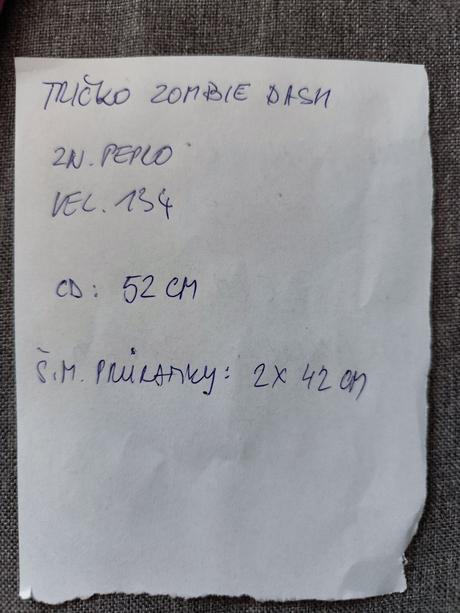 TRIČKO ZOMBIE DASH
ZN. PEPCO
VEL. 134
CD: 52 CM
Š.M. PRŮRAMKY: 2X 42 CM